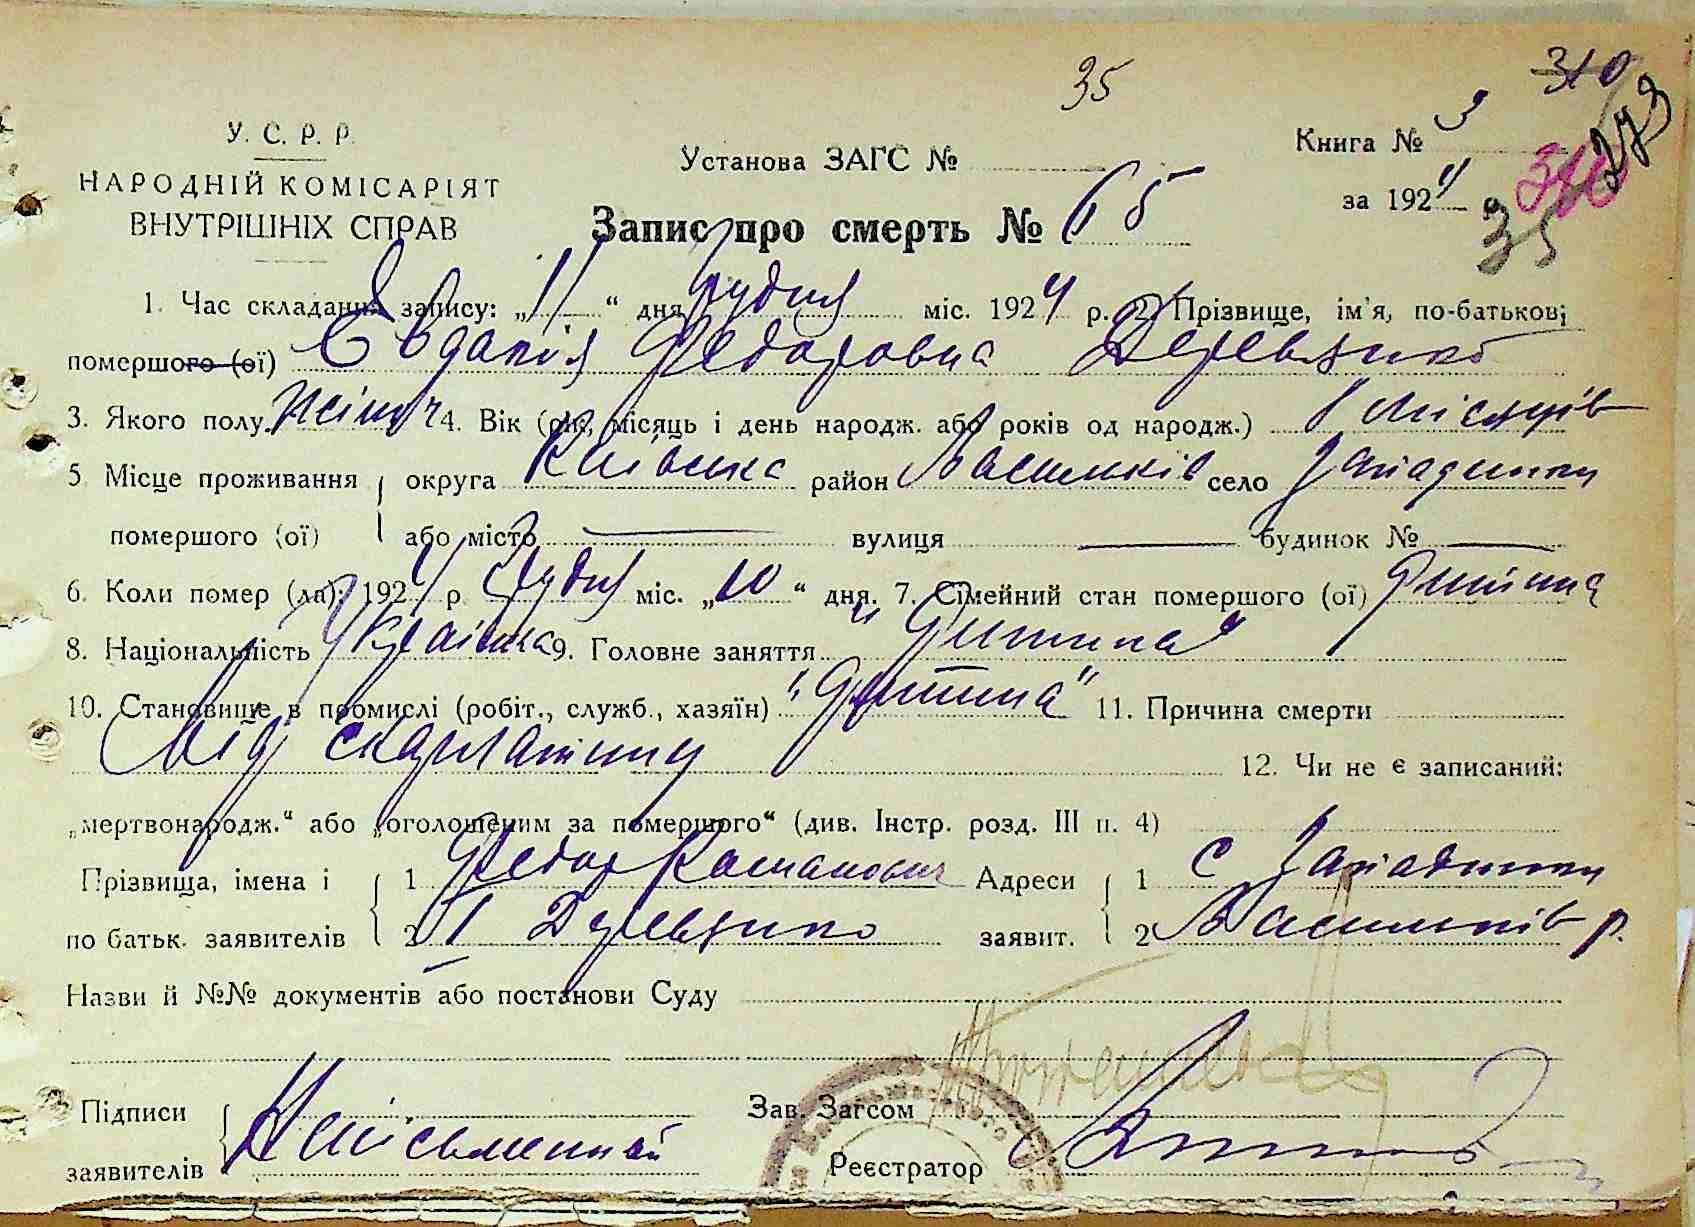 35
310
273
310
35
У. С. Р. Р.
НАРОДНІЙ КОМІСАРІЯТ
ВНУТРІШНІХ СПРАВ
Установа ЗАГС №
Книга № 3
за 1924 р.
Запис про смерть № 65
1. Час складання запису: „11“ дня грудня міс. 1924 р. 2. Прізвище, ім'я, по-батькові
помершого (ої) Євдокія Федоровна Деревянко
3. Якого полу жіноч 4. Вік (рік, місяць і день народж. або років од народж.) місяців
5 Місце проживання округа Київська район Васильків село Западинки
помершого (ої) або місто вулиця будинок №
6. Коли помер (ла): 1924 р грудня міс. „10“ дня. 7. Сімейний стан помершого (ої) дитина
8. Національність Українка 9. Головне заняття „дитина“
10. Становище в промислі (робіт., служб., хазяїн) „дитина“ 11. Причина смерти
Від скарлатини 12. Чи не є записаний:
„мертвонародж.“ або „оголошеним за померщого“ (див. Інстр. розд. III п. 4)
Прізвища, імена і 1 Федор Романович Адреси 1 с Западинки
по батьк. заявителів 2 Деревянко заявит. 2 Васильків р.
Назви й №№ документів або постанови Суду
Підписи Зав. Загсом
Неписьменний
заявителів Реєстратор